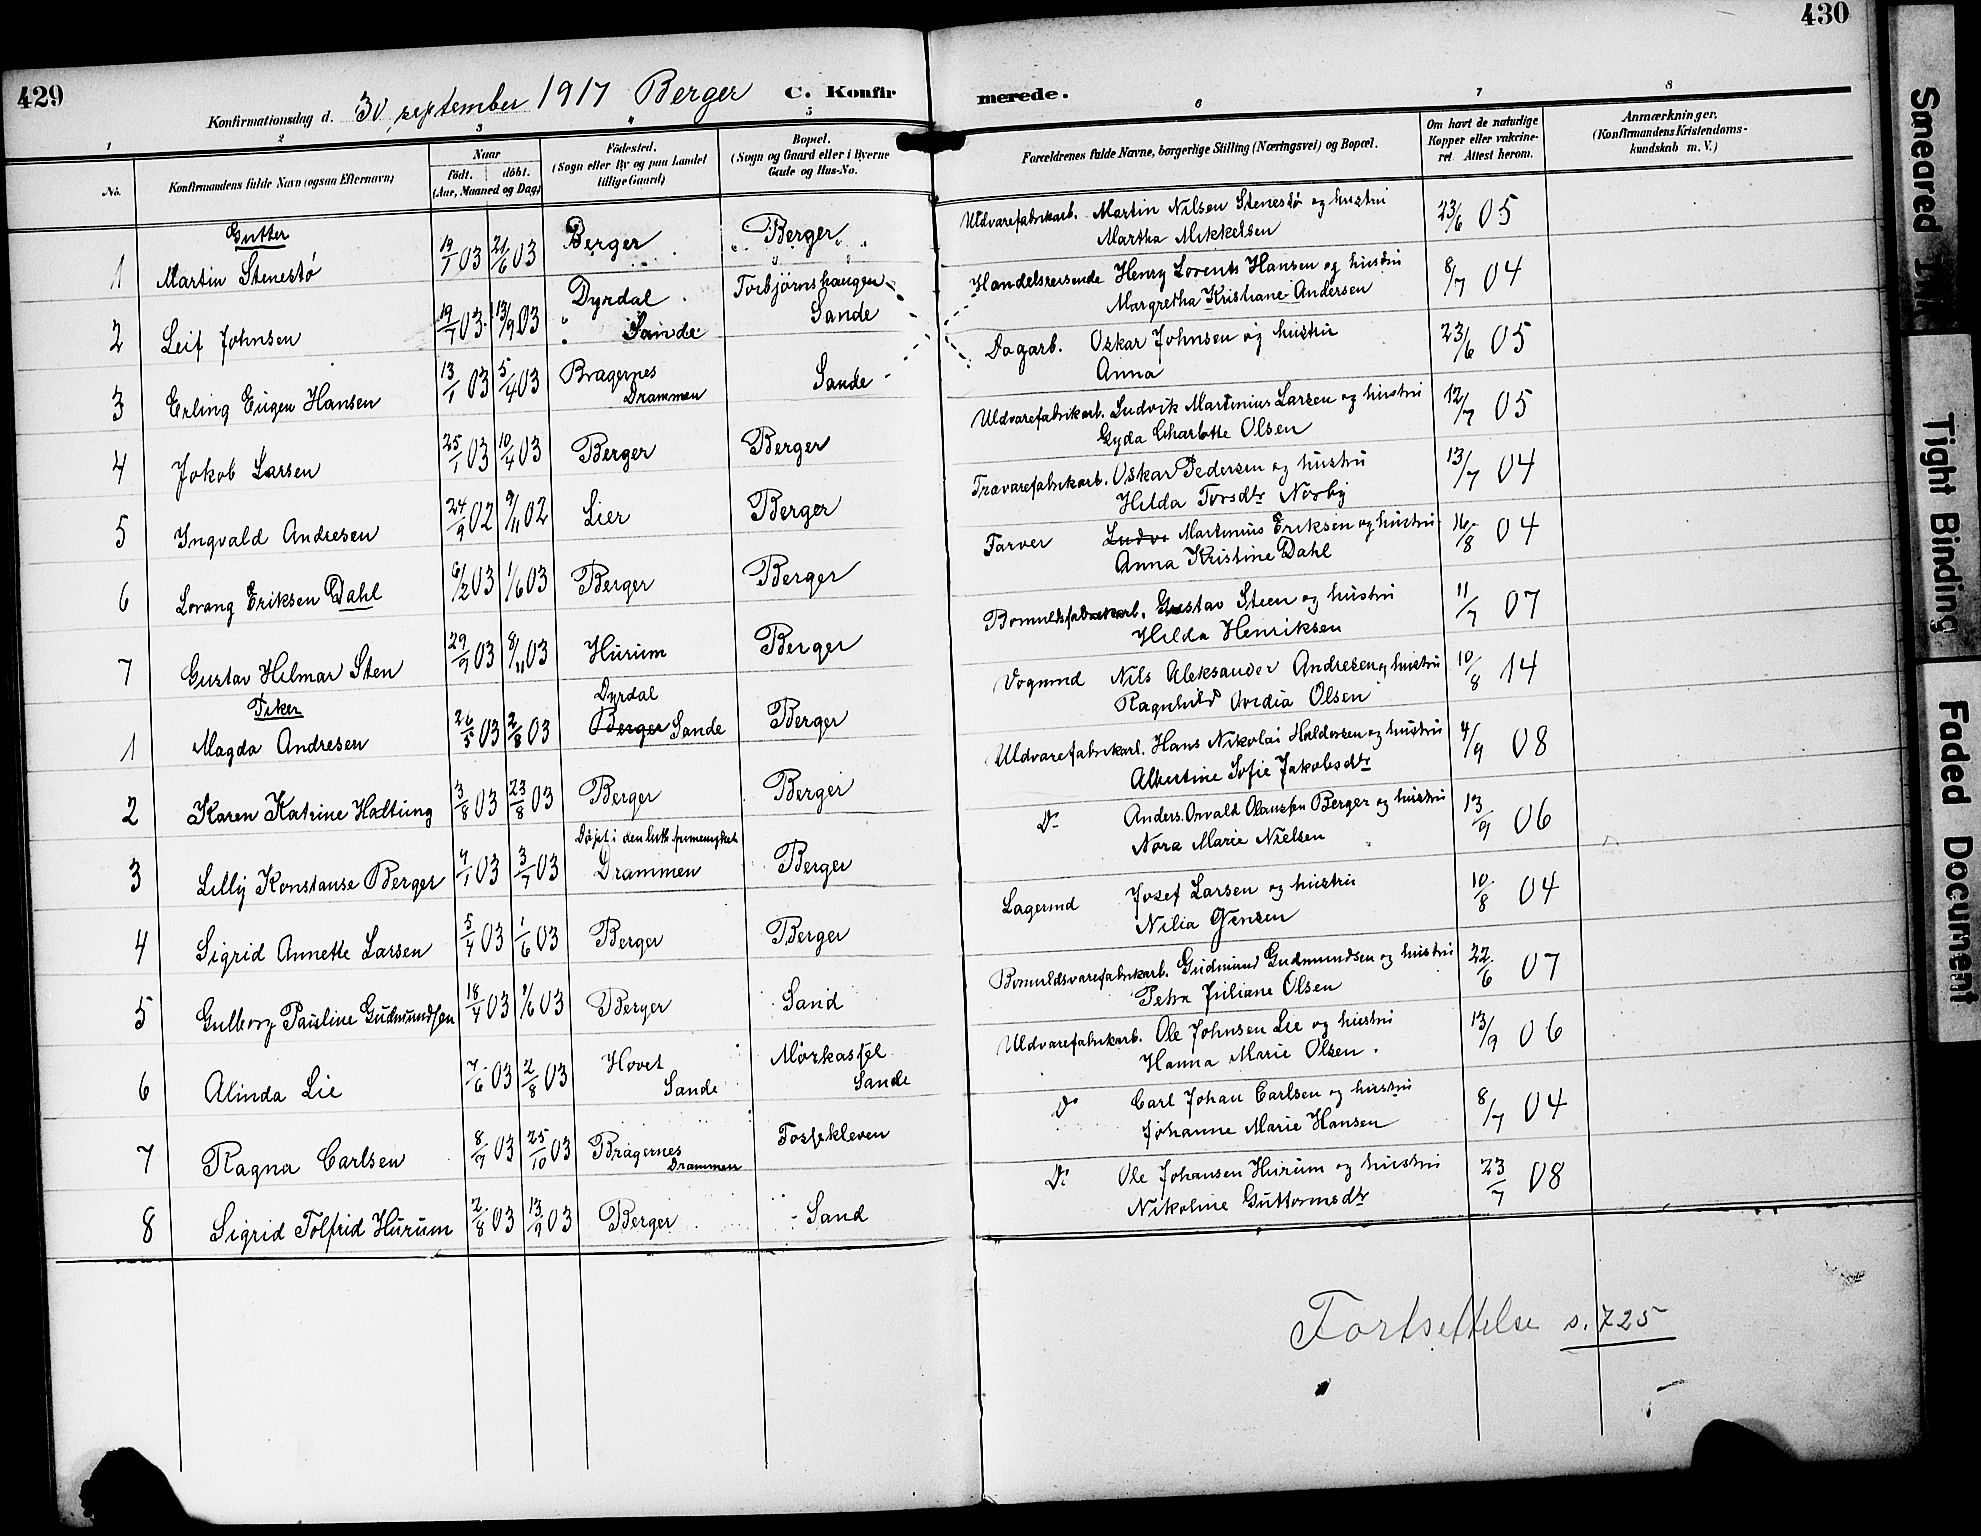 429
Konfirmationsdag d. 30 september 1917 Berger C. Konfir
1 2 3 4 5
No.
Konfirmandens fulde Navn (ogsaa Efternavn)
Naar
født. døbt.
(Aar, Maaned og Dag)
Fødested.
(Sogn eller By og paa Landet
tillige Gaard)
Bopæl.
(Sogn og Gaard eller i Byerne
Gade og Hus-No.
Gutter
1 Martin Stenestø 19/1 03 21/6 03 Berger Berger
2 Leif Johnsen 19/7 03 13/9 03 Dyrdal Sande Torbjørnshaugen Sande
3 Erling Eugen Hansen 13/1 03 5/4 03 Bragernes Drammen Sande
4 Jakob Larsen 25/1 03 10/4 03 Berger Berger
5 Ingvald Andresen 24/9 02 9/11 02 Lier Berger
6 Lorang Eriksen Dahl 6/2 03 1/6 03 Berger Berger
7 Gustav Hilmar Sten 29/9 03 8/11 03 Hurum Berger
Piker
1 Magda Andresen 26/5 03 2/8 03 Dyrdal Berger Sande Berger
2 Karen Katrine Holtung 3/8 03 23/8 03 Berger Berger
3 Lilly Konstanse Berger 4/1 03 3/7 03 Døpt i den luth. frimenighet Drammen Berger
4 Sigrid Annette Larsen 5/4 03 1/6 03 Berger Berger
5 Gulborg Pauline Gudmundsen 18/4 03 1/6 03 Berger Sand
6 Alinda Lie 7/6 03 2/8 03 Hovet Sande Mørkassel Sande
7 Ragna Carlsen 8/7 03 25/10 03 Bragernes Drammen Fossekleven
8 Sigrid Tolfrid Hurum 2/8 03 13/9 03 Berger Sand
430
merede.
6 7 8
Forældrenes fulde Navne, borgerlige Stilling (Næringsvei) og Bopæl.
Om havt de naturlige
Kopper eller vakcine-
ret. Attest herom.
Anmærkninger.
(Konfirmandens Kristendoms-
kundskab m. V.)
Uldvarefabrikarb. Martin Nilsen Stenestø og hustru 23/6 05
Martha Mikkelsen
Handelsreisende Henry Lorents Hansen og hustru 8/7 04
Margretha Kristiane Andersen
Dagarb. Oskar Johnsen og hustru 23/6 05
Anna
Uldvarefabrikarb. Ludvik Martinius Larsen og hustru 12/7 05
Gyda Charlotte Olsen
Trævarefabrikarb. Oskar Pedersen og hustru 13/7 04
Hilda Torsdtr Norby
Farver Ludv. Martinius Eriksen og hustru 16/8 04
Anna Kristine Dahl
Bomuldsfabrikarb. Gustav Steen og hustru 11/7 07
Hilda Henriksen
Vognmd Nils Aleksander Andresen og hustru 10/8 14
Ragnhild Ovidia Olsen
Uldvarefabrikarb. Hans Nikolai Haldorsen og hustru 4/9 08
Albertine Sofie Jakobsdtr
Do Anders Orvald Olaussen Berger og hustru 13/9 06
Nora Marie Nielsen
Lagermd Josef Larsen og hustru 10/8 04
Nilia Jensen
Bomuldsvarefabrikarb. Gudmund Gudmundsen og hustru 22/6 07
Petra Juliane Olsen
Uldvarefabrikarb. Ole Johnsen Lie og hustru 13/9 06
Hanna Marie Olsen.
Do Carl Johan Carlsen og hustru 8/7 04
Johanne Marie Hansen
Do Ole Johansen Hurum og hustru 23/7 08
Nikoline Guttormsdtr
Fortsettelse s. 725
Smeared Ink
Tight Binding
Faded Document